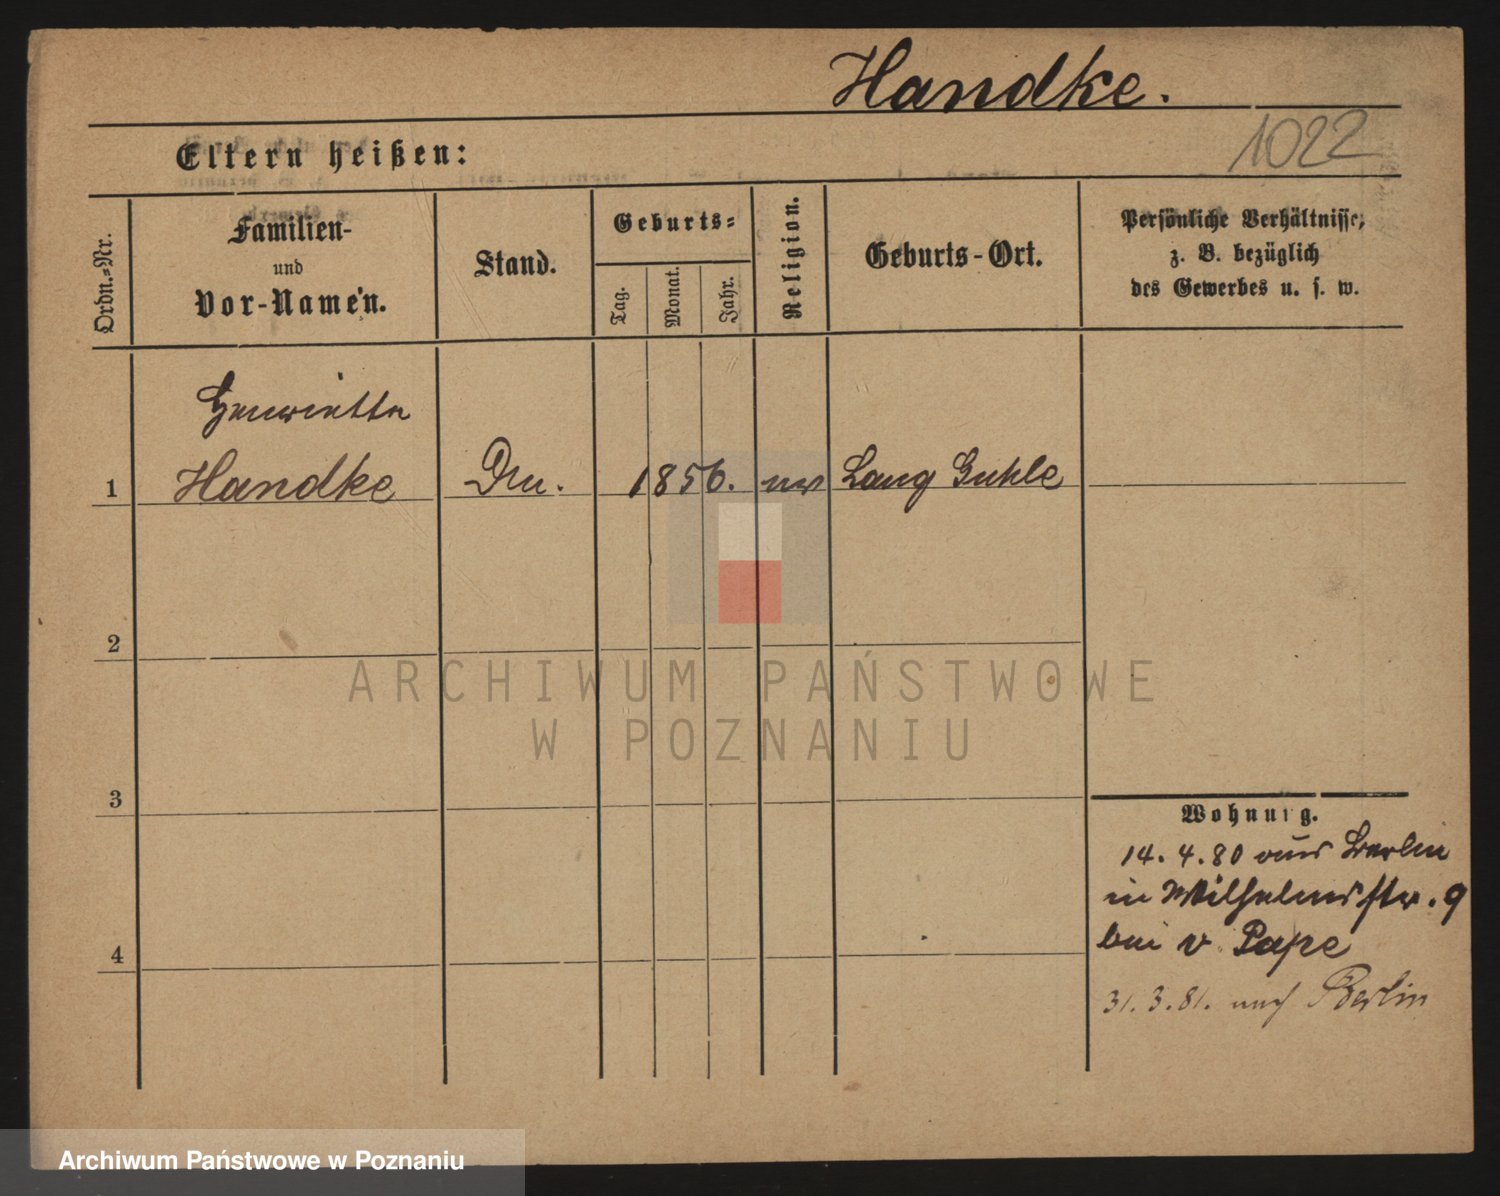 Handke.
1022
Eltern heißen:
Ordn.=Nr.
Familien-
und
Vor-Namen.
Stand.
Geburts=
Tag.
Monat.
Jahr.
Religion.
Geburts-Ort.
Persönliche Verhältnisse,
z. B. bezüglich
des Gewerbes u. s. w.
Henriette
1 Handke 1856. Lang Guhle
2
3
4
Wohnung.
14. 4. 80 aus Berlin
in Wilhelmsstr. 9
bei v. Pape
31. 3. 81. nach Berlin
ARCHIWUM PAŃSTWOWE
W POZNANIU
Archiwum Państwowe w Poznaniu